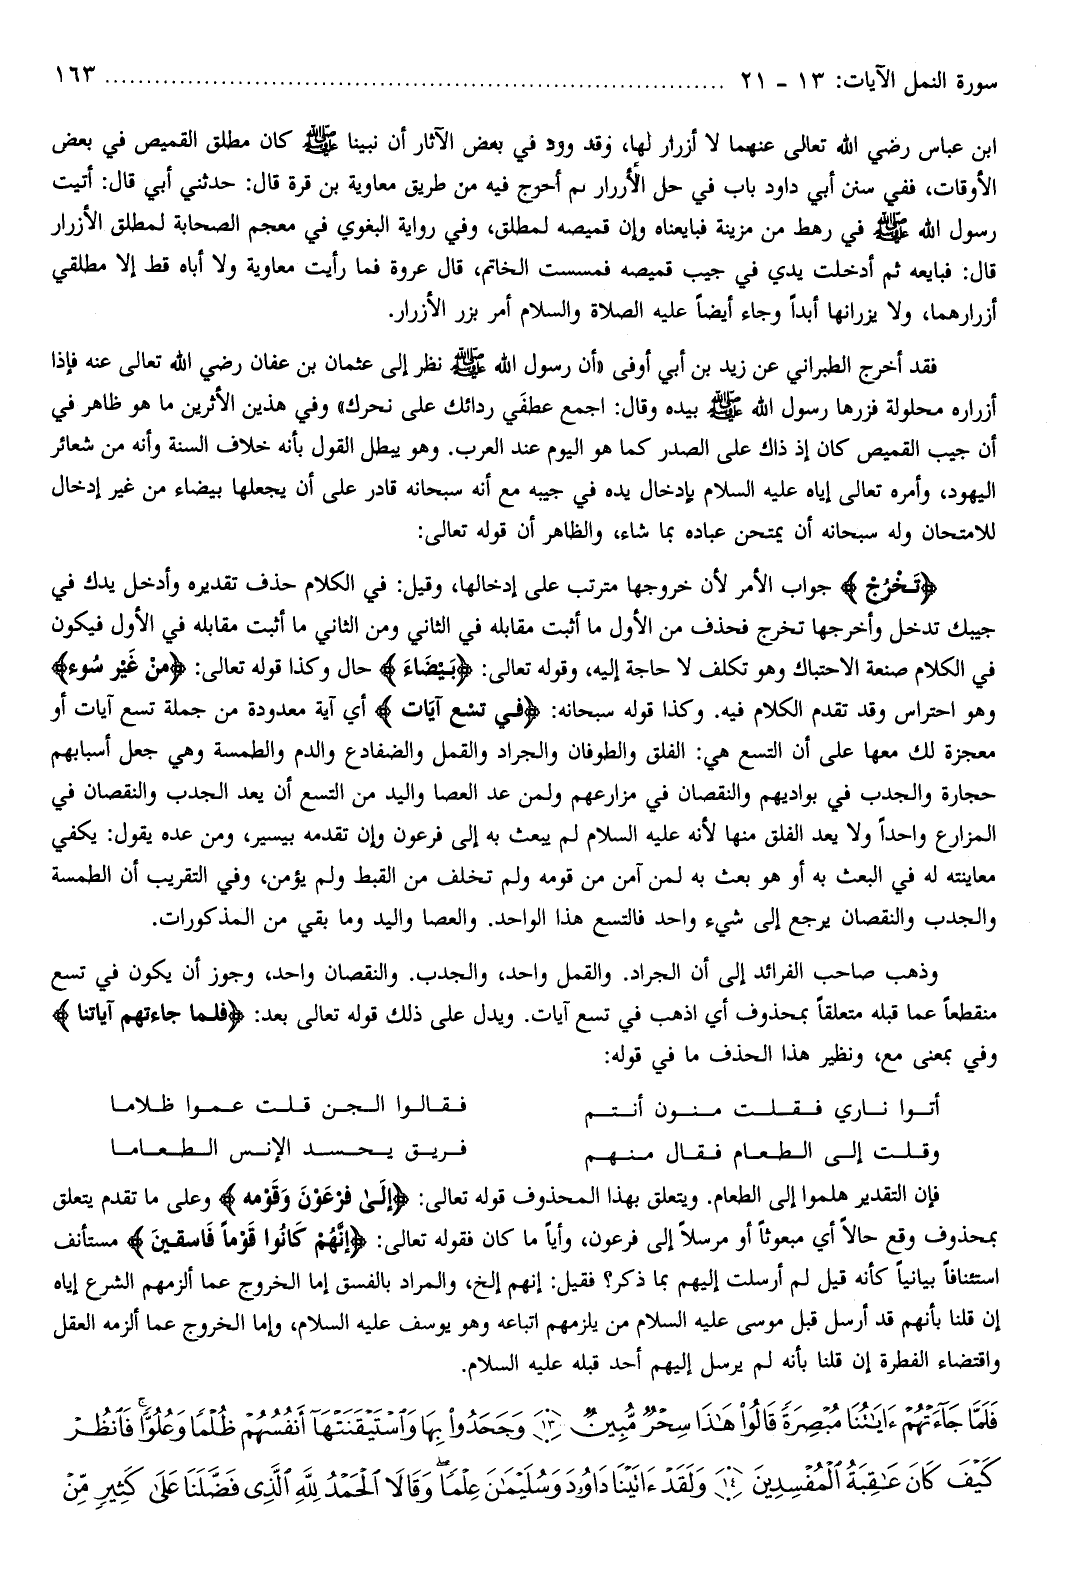 سورة النمل الآيات: ١٣ - ٢١ ........................................................ ١٦٣
ابن عباس رضي الله تعالى عنهما لا أزرار لها، وقد ورد في بعض الآثار أن نبينا ﷺ كان مطلق القميص في بعض
الأوقات، ففي سنن أبي داود باب في حل الأزرار ثم أخرج فيه من طريق معاوية بن قرة قال: حدثني أبي قال: أتيت
رسول الله ﷺ في رهط من مزينة فبايعناه وإن قميصه لمطلق، وفي رواية البغوي في معجم الصحابة لمطلق الأزرار
قال: فبايعه ثم أدخلت يدي في جيب قميصه فمسست الخاتم، قال عروة فما رأيت معاوية ولا أباه قط إلا مطلقي
أزرارهما، ولا يزرانها أبداً وجاء أيضاً عليه الصلاة والسلام أمر بزر الأزرار.
فقد أخرج الطبراني عن زيد بن أبي أوفى «أن رسول الله ﷺ نظر إلى عثمان بن عفان رضي الله تعالى عنه فإذا
أزراره محلولة فزرها رسول الله ﷺ بيده وقال: اجمع عطفَي ردائك على نحرك» وفي هذين الأثرين ما هو ظاهر في
أن جيب القميص كان إذ ذاك على الصدر كما هو اليوم عند العرب. وهو يبطل القول بأنه خلاف السنة وأنه من شعائر
اليهود، وأمره تعالى إياه عليه السلام بإدخال يده في جيبه مع أنه سبحانه قادر على أن يجعلها بيضاء من غير إدخال
للامتحان وله سبحانه أن يمتحن عباده بما شاء، والظاهر أن قوله تعالى:
﴿تَخْرُجْ﴾ جواب الأمر لأن خروجها مترتب على إدخالها، وقيل: في الكلام حذف تقديره وأدخل يدك في
جيبك تدخل وأخرجها تخرج فحذف من الأول ما أثبت مقابله في الثاني ومن الثاني ما أثبت مقابله في الأول فيكون
في الكلام صنعة الاحتباك وهو تكلف لا حاجة إليه، وقوله تعالى: ﴿بَيْضَاءَ﴾ حال وكذا قوله تعالى: ﴿منْ غَيْر سُوء﴾
وهو احتراس وقد تقدم الكلام فيه. وكذا قوله سبحانه: ﴿في تسْع آيَات﴾ أي آية معدودة من جملة تسع آيات أو
معجزة لك معها على أن التسع هي: الفلق والطوفان والجراد والقمل والضفادع والدم والطمسة وهي جعل أسبابهم
حجارة والجدب في بواديهم والنقصان في مزارعهم ولمن عد العصا واليد من التسع أن يعد الجدب والنقصان في
المزارع واحداً ولا يعد الفلق منها لأنه عليه السلام لم يبعث به إلى فرعون وإن تقدمه بيسير، ومن عده يقول: يكفي
معاينته له في البعث به أو هو بعث به لمن آمن من قومه ولم تخلف من القبط ولم يؤمن، وفي التقريب أن الطمسة
والجدب والنقصان يرجع إلى شيء واحد فالتسع هذا الواحد. والعصا واليد وما بقي من المذكورات.
وذهب صاحب الفرائد إلى أن الجراد. والقمل واحد، والجدب. والنقصان واحد، وجوز أن يكون في تسع
منقطعاً عما قبله متعلقاً بمحذوف أي اذهب في تسع آيات. ويدل على ذلك قوله تعالى بعد: ﴿فلما جاءتهم آياتنا﴾
وفي بمعنى مع، ونظير هذا الحذف ما في قوله:
أتوا ناري فقلت منون أنتم فقالوا الجن قلت عموا ظلاما
وقلت إلى الطعام فقال منهم فريق يحسد الإنس الطعاما
فإن التقدير هلموا إلى الطعام. ويتعلق بهذا المحذوف قوله تعالى: ﴿إلَىٰ فرْعَوْنَ وَقَوْمه﴾ وعلى ما تقدم يتعلق
بمحذوف وقع حالاً أي مبعوثاً أو مرسلاً إلى فرعون، وأياً ما كان فقوله تعالى: ﴿إنَّهُمْ كَانُوا قَوْماً فَاسقينَ﴾ مستأنف
استئنافاً بيانياً كأنه قيل لم أرسلت إليهم بما ذكر؟ فقيل: إنهم إلخ، والمراد بالفسق إما الخروج عما ألزمهم الشرع إياه
إن قلنا بأنهم قد أرسل قبل موسى عليه السلام من يلزمهم اتباعه وهو يوسف عليه السلام، وإما الخروج عما ألزمه العقل
واقتضاء الفطرة إن قلنا بأنه لم يرسل إليهم أحد قبله عليه السلام.
فَلَمَّا جَآءَتْهُمْ ءَايَٰتُنَا مُبْصِرَةً قَالُوا۟ هَٰذَا سِحْرٌ مُّبِينٌ ۝١٣ وَجَحَدُوا۟ بِهَا وَٱسْتَيْقَنَتْهَآ أَنفُسُهُمْ ظُلْمًا وَعُلُوًّا ۚ فَٱنظُرْ
كَيْفَ كَانَ عَٰقِبَةُ ٱلْمُفْسِدِينَ ۝١٤ وَلَقَدْ ءَاتَيْنَا دَاوُۥدَ وَسُلَيْمَٰنَ عِلْمًا ۖ وَقَالَا ٱلْحَمْدُ لِلَّهِ ٱلَّذِى فَضَّلَنَا عَلَىٰ كَثِيرٍ مِّنْ